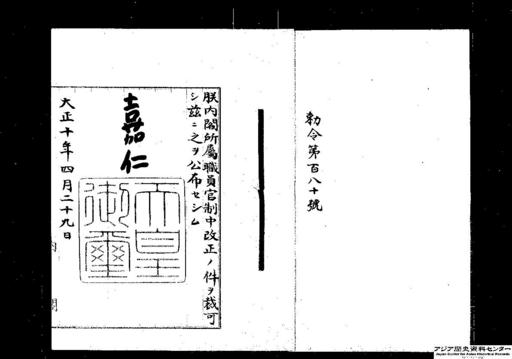 勅令第百八十號
朕内閣所屬職員官制中改正ノ件ヲ裁可
シ茲ニ之ヲ公布セシム
嘉仁
天皇御璽
大正十年四月二十九日
内閣
アジア歴史資料センター
Japan Center for Asian Historical Records